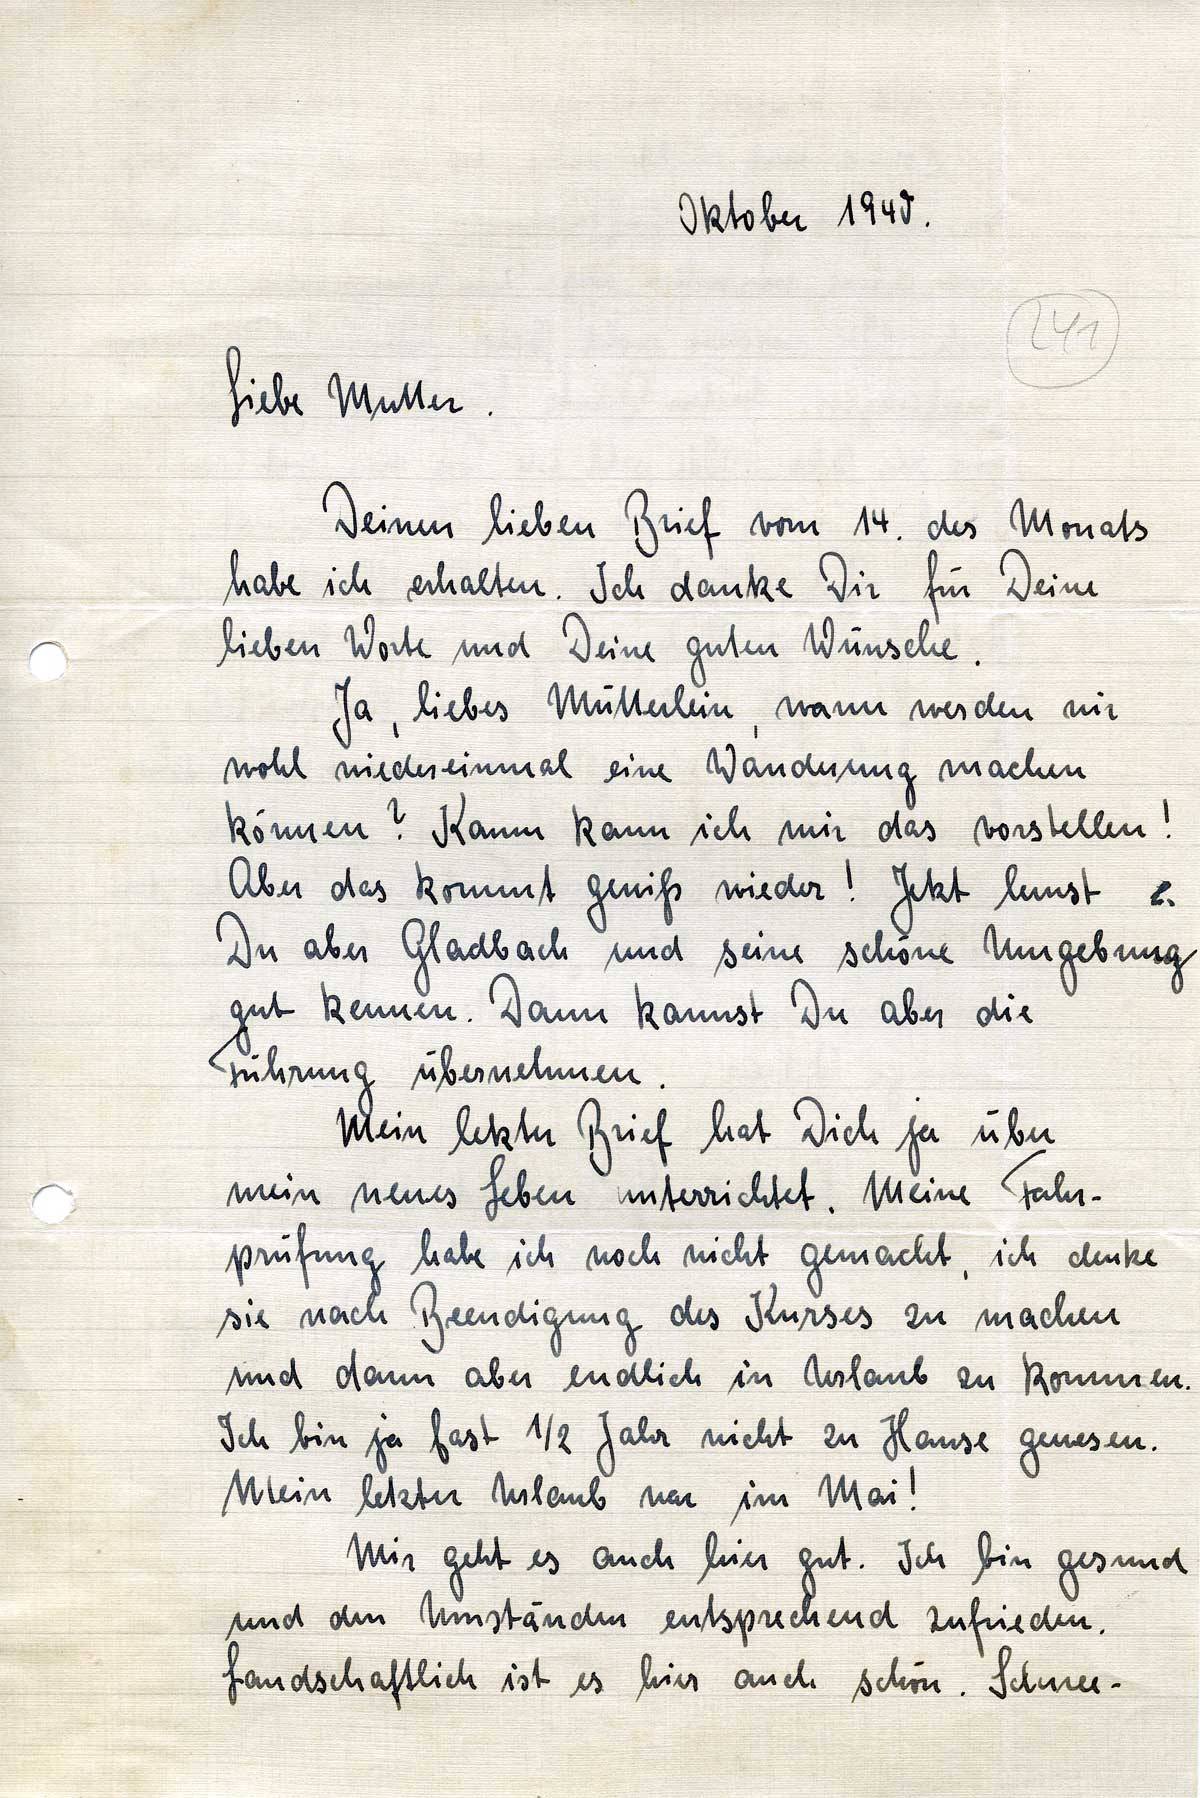 Oktober 1940.
241
Liebe Mutter.
Deinen lieben Brief vom 14. des Monats
habe ich erhalten. Ich danke Dir für Deine
lieben Worte und Deine guten Wünsche.
Ja, liebes Mütterlein, wann werden wir
wohl wiedereinmal eine Wanderung machen
können? Kaum kann ich mir das vorstellen!
Aber das kommt gewiß wieder! Jetzt lernst
Du aber Gladbach und seine schöne Umgebung
gut kennen. Dann kannst Du aber die
Führung übernehmen.
Mein letzter Brief hat Dich ja über
mein neues Leben unterrichtet. Meine Fahr-
prüfung habe ich noch nicht gemacht, ich denke
sie nach Beendigung des Kurses zu machen
und dann aber endlich in Urlaub zu kommen.
Ich bin ja fast 1/2 Jahr nicht zu Hause gewesen.
Mein letzter Urlaub war im Mai!
Mir geht es auch hier gut. Ich bin gesund
und den Umständen entsprechend zufrieden.
Landschaftlich ist es hier auch schön. Schnee-